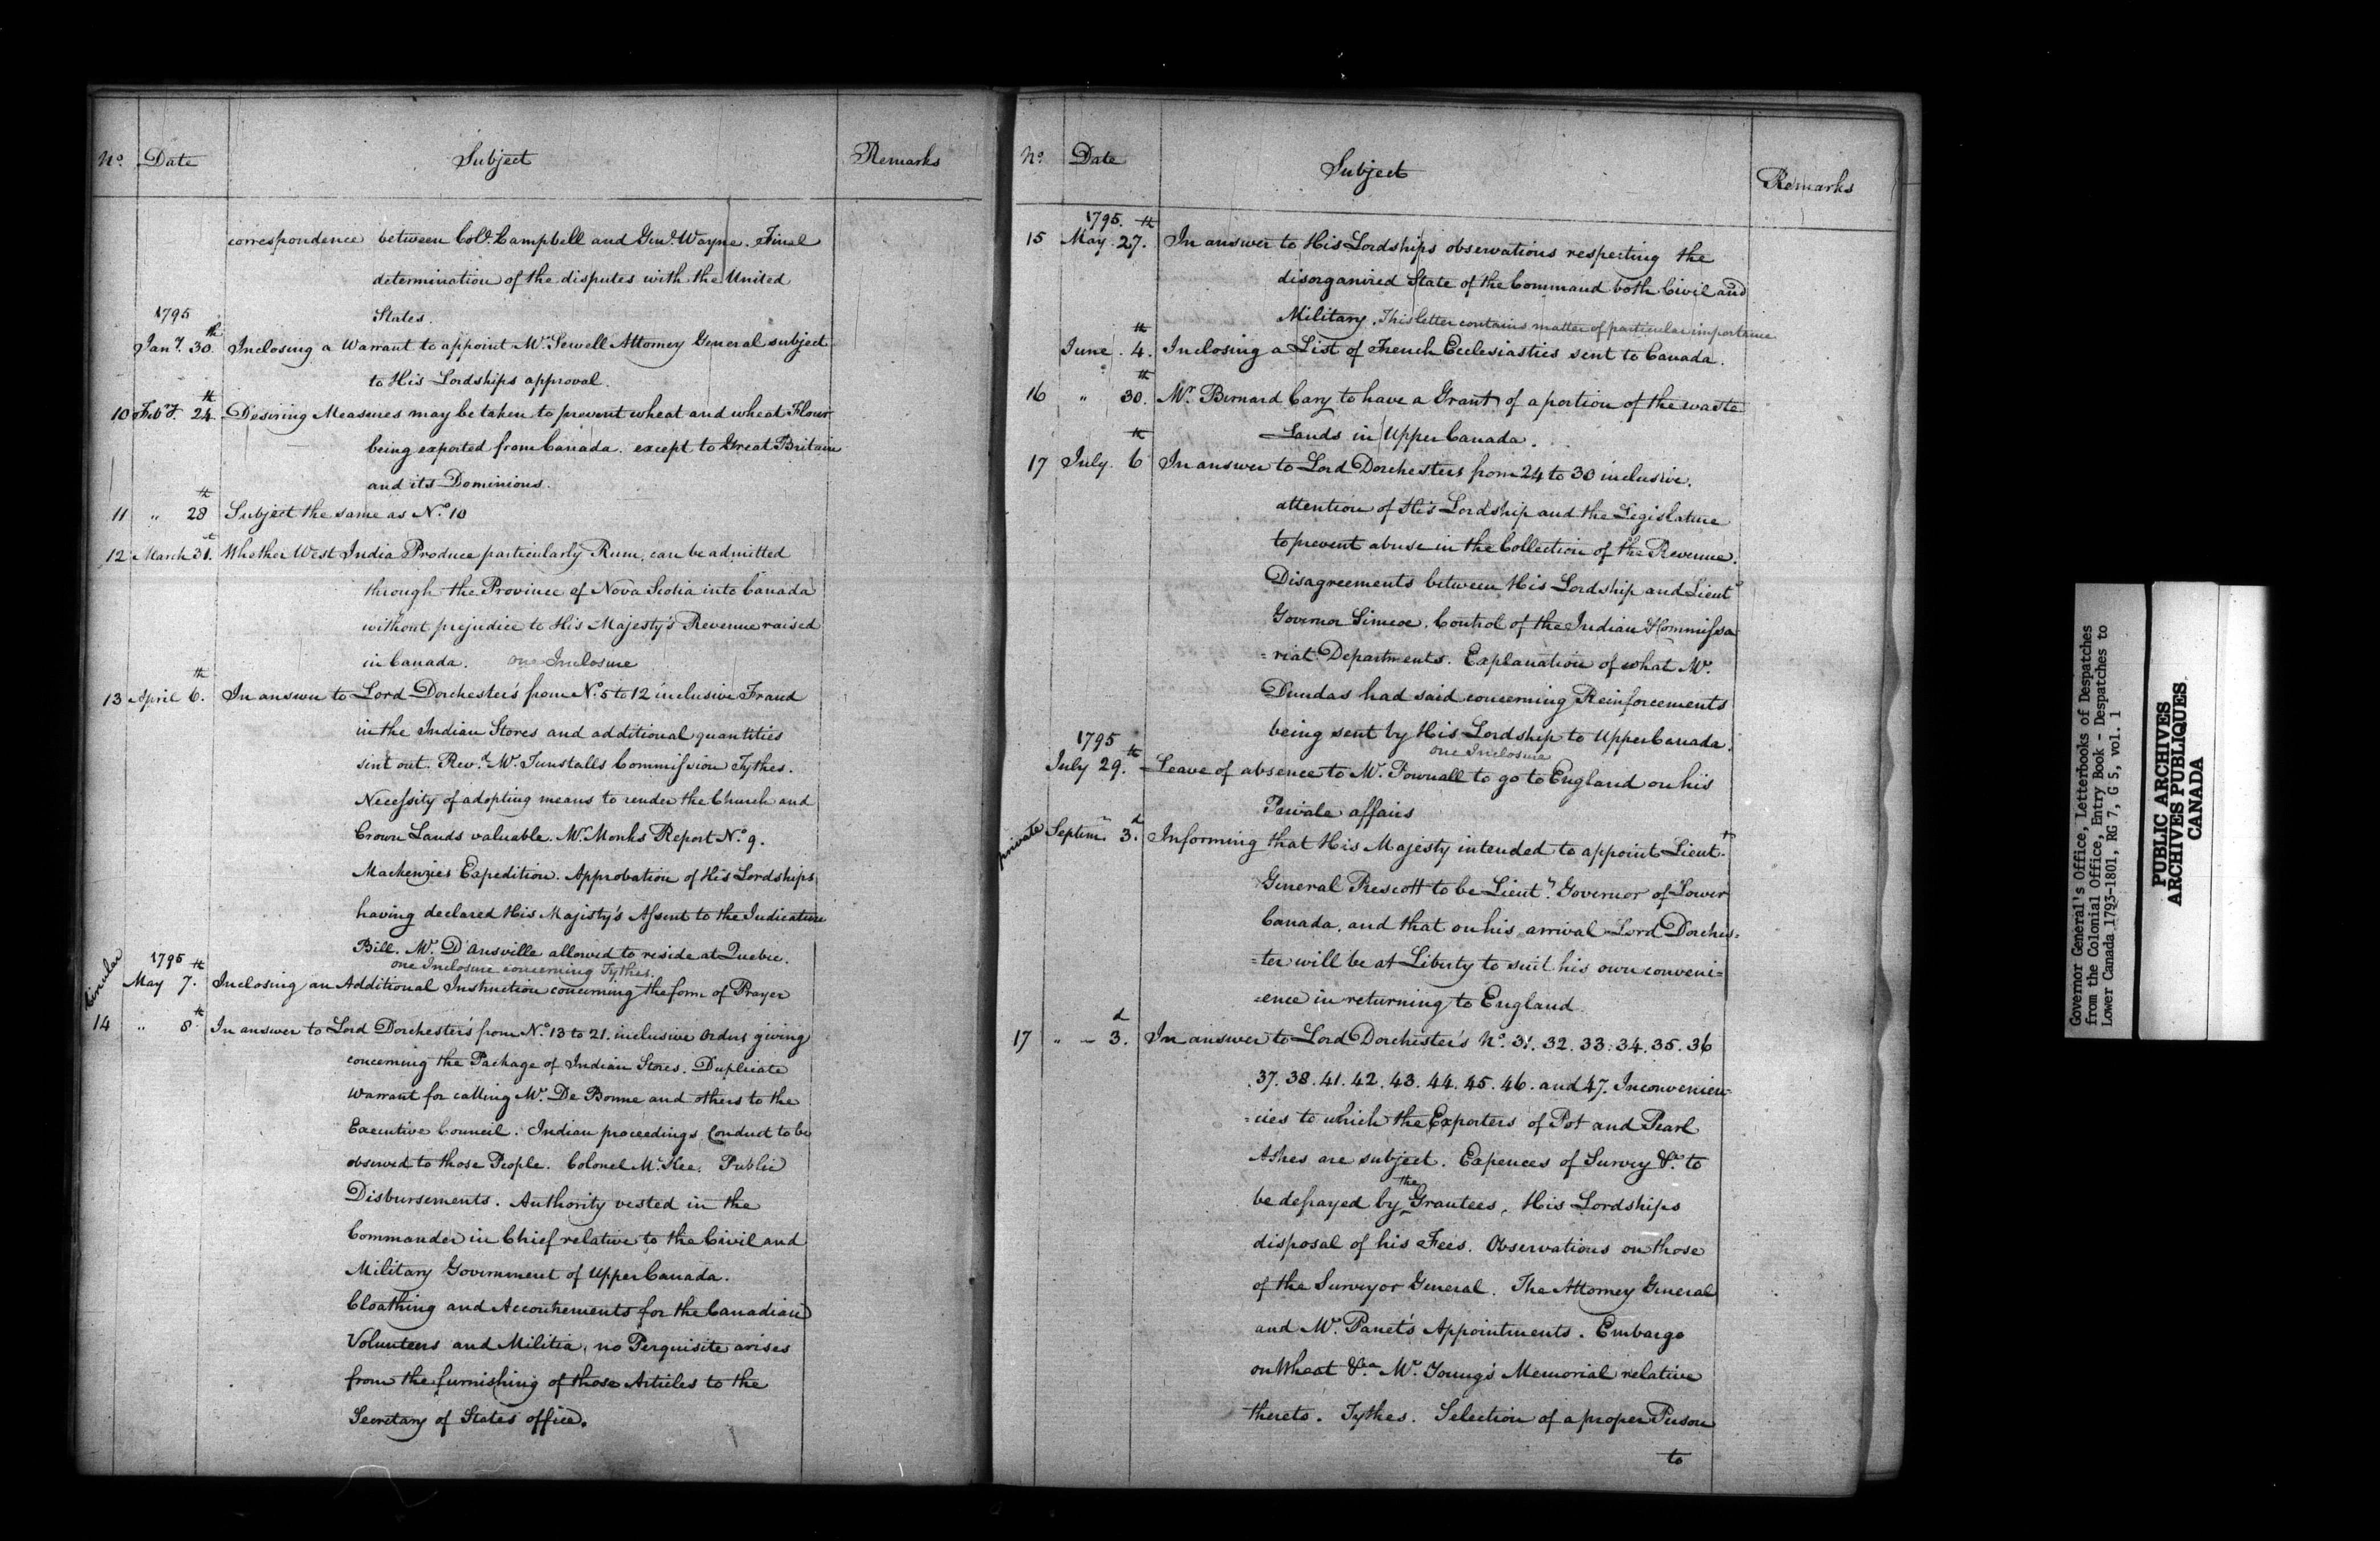 No. Date Subject Remarks
correspondence between Col. Campbell and Genl. Wayne. Final
determination of the disputes with the United
States.
1795
Jany. 30th. Inclosing a Warrant to appoint Mr. Sewell Attorney General subject
to His Lordships approval.
10 Feby. 24th Desiring Measures may be taken to prevent wheat and wheat Flour
being exported from Canada. except to Great Britain
and its Dominions.
11 " 28th Subject the same as No. 10
12 March 31st. Whether West India Produce particularly Rum, can be admitted
through the Province of Nova Scotia into Canada
without prejudice to His Majesty's Revenue raised
in Canada. one Inclosure
13 April 6th. In answer to Lord Dorchester's from No. 5 to 12 inclusive Fraud
in the Indian Stores and additional quantities
sent out. Revd. Mr. Tunstalls Commission Tythes.
Necessity of adopting means to render the Church and
Crown Lands valuable. Mr. Monks Report No. 9.
Mackenzies Expedition. Approbation of His Lordships
having declared His Majesty's Assent to the Judicature
Bill. Mr. D'Ansville allowed to reside at Quebec.
one Inclosure concerning Tythes.
1795
Circular May 7th. Inclosing an Additional Instruction concerning the form of Prayer
14 " 8th In answer to Lord Dorchester's from No. 13 to 21. inclusive Orders giving
concerning the Package of Indian Stores. Duplicate
Warrant for calling Mr. De Bonne and others to the
Executive Council. Indian proceedings Conduct to be
observed to those People. Colonel McKee. Public
Disbursements. Authority vested in the
Commander in Chief relative to the Civil and
Military Government of Upper Canada.
Cloathing and Accoutrements for the Canadian
Volunteers and Militia, no Perquisite arises
from the furnishing of those Articles to the
Secretary of States office.
No. Date Subject Remarks
1795.
15 May 27th. In answer to His Lordships observations respecting the
disorganized State of the Command both Civil and
Military. This letter contains matter of particular importance
June 4th. Inclosing a List of French Ecclesiastics sent to Canada.
16 " 30th. Mr. Bernard Cary to have a Grant of a portion of the waste
Lands in Upper Canada.
17 July 6th In answer to Lord Dorchesters from 24 to 30 inclusive.
attention of His Lordship and the Legislature
to prevent abuse in the Collection of the Revenue.
Disagreements between His Lordship and Lieut.
Governor Simcoe. Control of the Indian & Commissa
=riat Departments. Explanation of what Mr.
Dundas had said concerning Reinforcements
being sent by His Lordship to Upper Canada.
one Inclosure
1795
July 29th. Leave of absence to Mr. Pownall to go to England on his
Private affairs
private Septemr. 3d. Informing that His Majesty intended to appoint Lieut.
General Prescott to be Lieut. Governor of Lower
Canada, and that on his arrival Lord Dorches=
=ter will be at Liberty to suit his own conveni=
=ence in returning to England
17 " - 3d. In answer to Lord Dorchester's No. 31. 32. 33. 34. 35. 36
37. 38. 41. 42. 43. 44. 45. 46. and 47. Inconvenien
=cies to which the Exporters of Pot and Pearl
Ashes are subject. Expences of Survey &c. to
be defrayed by the Grantees, His Lordships
disposal of his Fees. Observations on those
of the Surveyor General. The Attorney General
and Mr. Panet's Appointments. Embargo
on Wheat &ca. Mr. Young's Memorial relative
thereto. Tythes. Selection of a proper Person
to
Governor General's Office, Letterbooks of Despatches
from the Colonial Office, Entry Book - Despatches to
Lower Canada 1793-1801, RG 7, G 5, vol. 1
PUBLIC ARCHIVES
ARCHIVES PUBLIQUES
CANADA